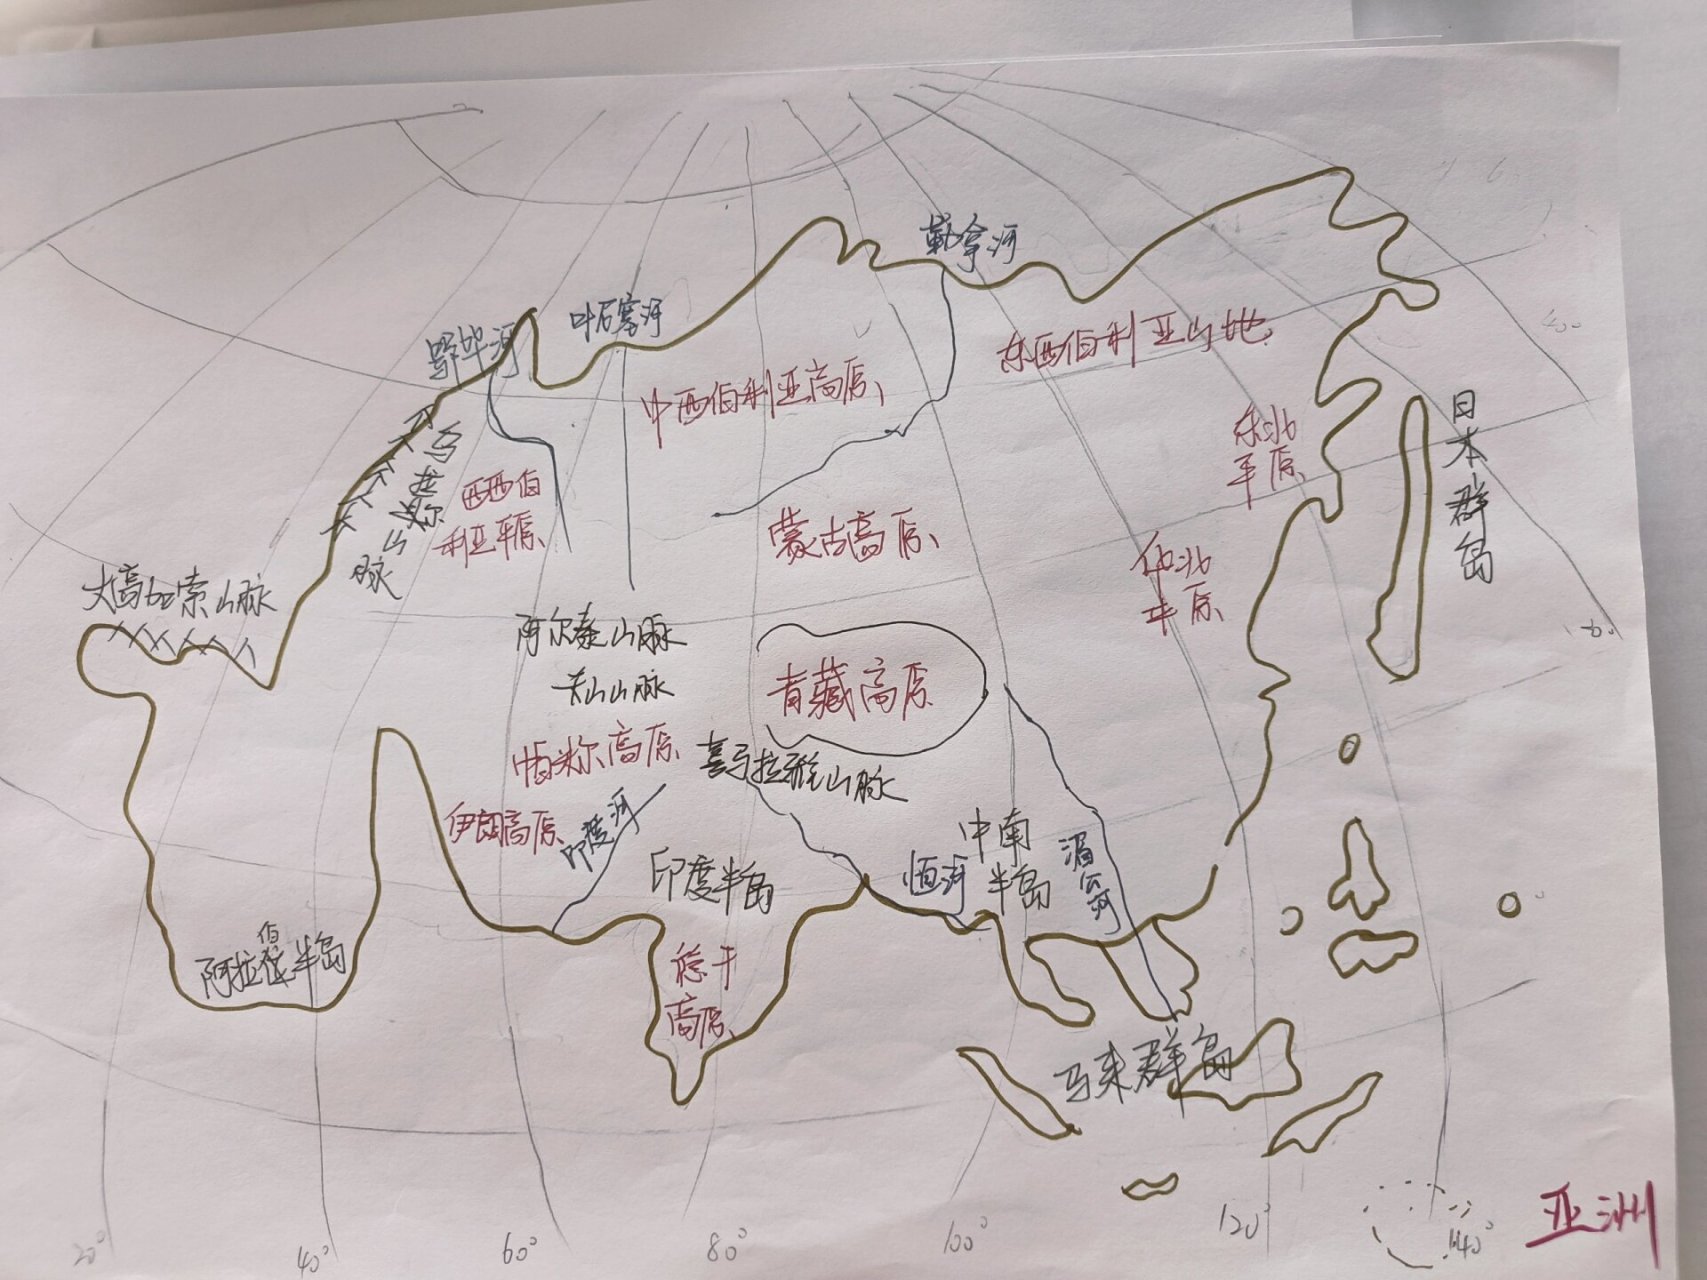 勒拿河
叶尼塞河
鄂毕河
东西伯利亚山地
中西伯利亚高原
日本群岛
东北
平原
乌拉尔山脉
西西伯
利亚平原
蒙古高原
华北
平原
大高加索山脉
阿尔泰山脉
天山山脉
青藏高原
帕米尔高原
喜马拉雅山脉
伊朗高原
印度河
印度半岛
中南
半岛
恒河
湄公河
阿拉伯半岛
德干
高原
马来群岛
亚洲
20°
40°
60°
80°
100°
120°
140°